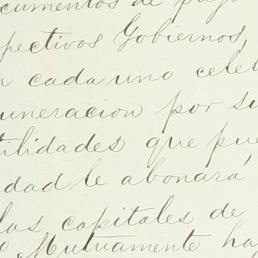 cumentos de pago
pectivos Gobiernos,
n cada uno cele
uneracion por su
tilidades que pue
dad le abonará
las capitales de
Mutuamente ha